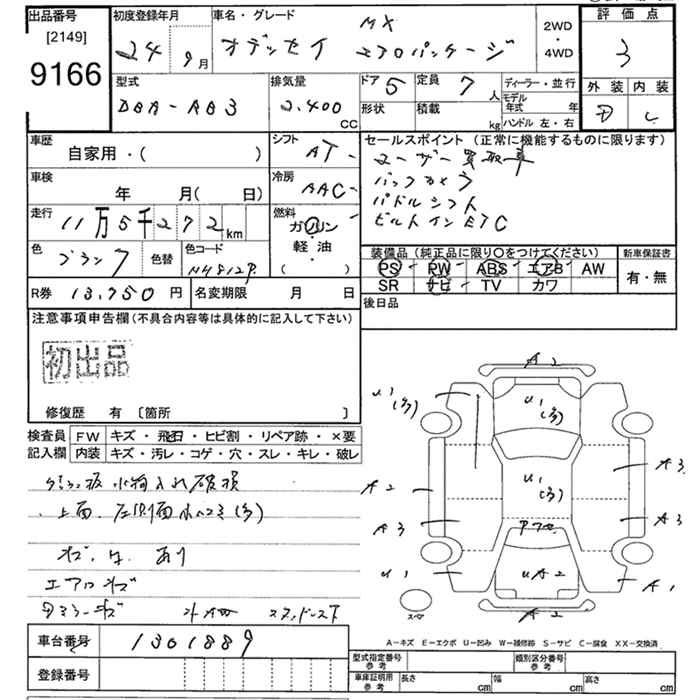 出品番号
[2149]
9166
初度登録年月
24 9月
車名・グレード
MX
オデッセイ エアロパッケージ
2WD
・
4WD
評価点
3
外装 内装
型式
DBA-RB3
排気量
2.400
CC
ドア 5
形状
定員 7人
積載 kg
ディーラー・並行
モデル
年式 年
ハンドル 左・右
車歴
自家用・( )
車検
年 月( 日)
走行
11万5千272km
色
ブラック
色替
色コード
NH812P
シフト
AT
冷房
AAC
燃料
ガソリン
軽油
( )
セールスポイント (正常に機能するものに限ります)
ユーザー買取車
バックカメラ
パドルシフト
ビルトインETC
装備品(純正品に限り〇をつけてください)
PS PW ABS エアB AW
SR ナビ TV カワ
新車保証書
有・無
R券 13,750円
名変期限 月 日
後日品
注意事項申告欄(不具合内容等は具体的に記入して下さい)
初出品
修復歴 有 〔箇所 〕
検査員
記入欄
FW キズ・飛石・ヒビ割・リペア跡・×要
内装 キズ・汚レ・コゲ・穴・スレ・キレ・破レ
上面、左側面ホコミ(多)
キズ、凹、あり
エアロキズ
車台番号 1301889
登録番号
A2
U1(多)
U1
(多)
U1
(多)
A2
A3
U1
A3
A3
A1
UA2
A2
スペア
A-キズ E-エクボ U-凹み W-補修跡 S-サビ C-腐食 XX-交換済
型式指定番号
参考
類別区分番号
参考
車庫証明用
参考
長さ cm
幅 cm
高さ cm